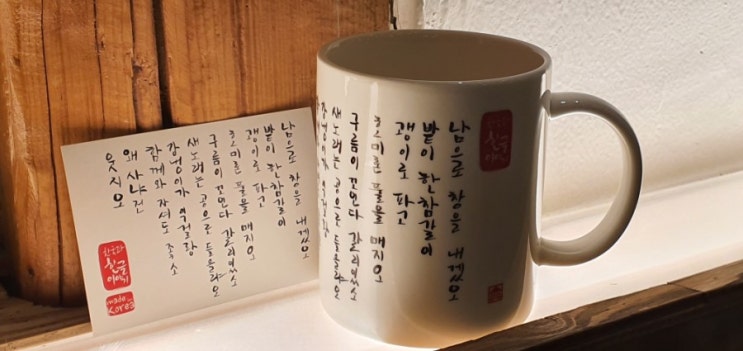 남으로 창을 내겠소
밭이 한참갈이
괭이로 파고
호미론 풀을 매지오
구름이 꼬인다 갈리있소
새노래는 공으로 들을랴오
강냉이가 익걸랑
함께와 자셔도 좋소
왜 사냐건
웃지오
한글
이야기
made in
Korea
한글
이야기
남으로 창을 내겠소
밭이 한참갈이
괭이로 파고
호미론 풀을 매지오
구름이 꼬인다 갈리있소
새노래는 공으로 들을랴오
강냉이가 익걸랑